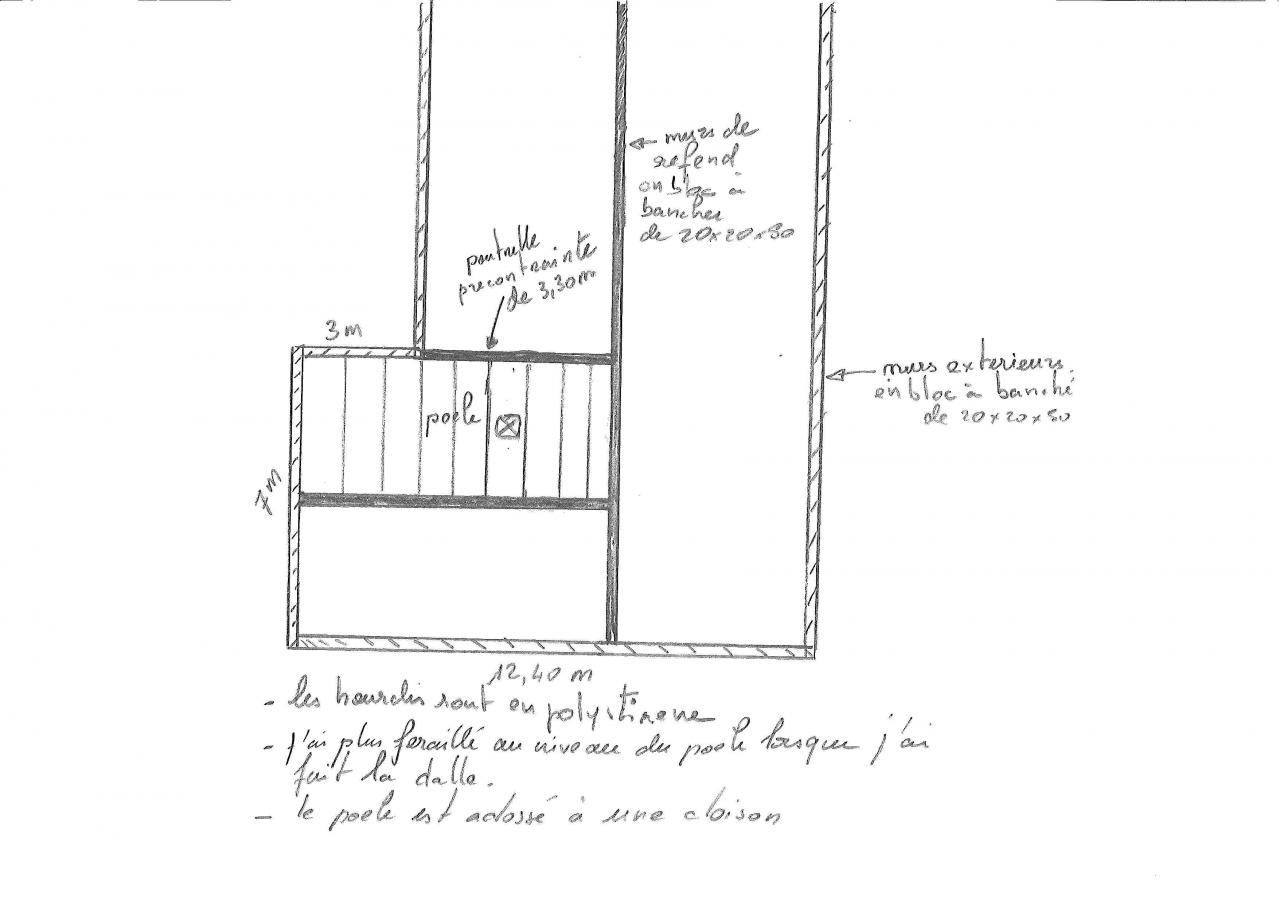 ← murs de
refend
en bloc à
bancher
de 20x20x50
poutrelle
precontrainte
de 3,30m
3m
poele
← murs exterieurs
en bloc à banché
de 20x20x50
7m
12,40 m
- les hourdis sont en polystirene
- j'ai plus feraillé au niveau du poele lorsque j'ai
fait la dalle.
- le poele est adossé à une cloison